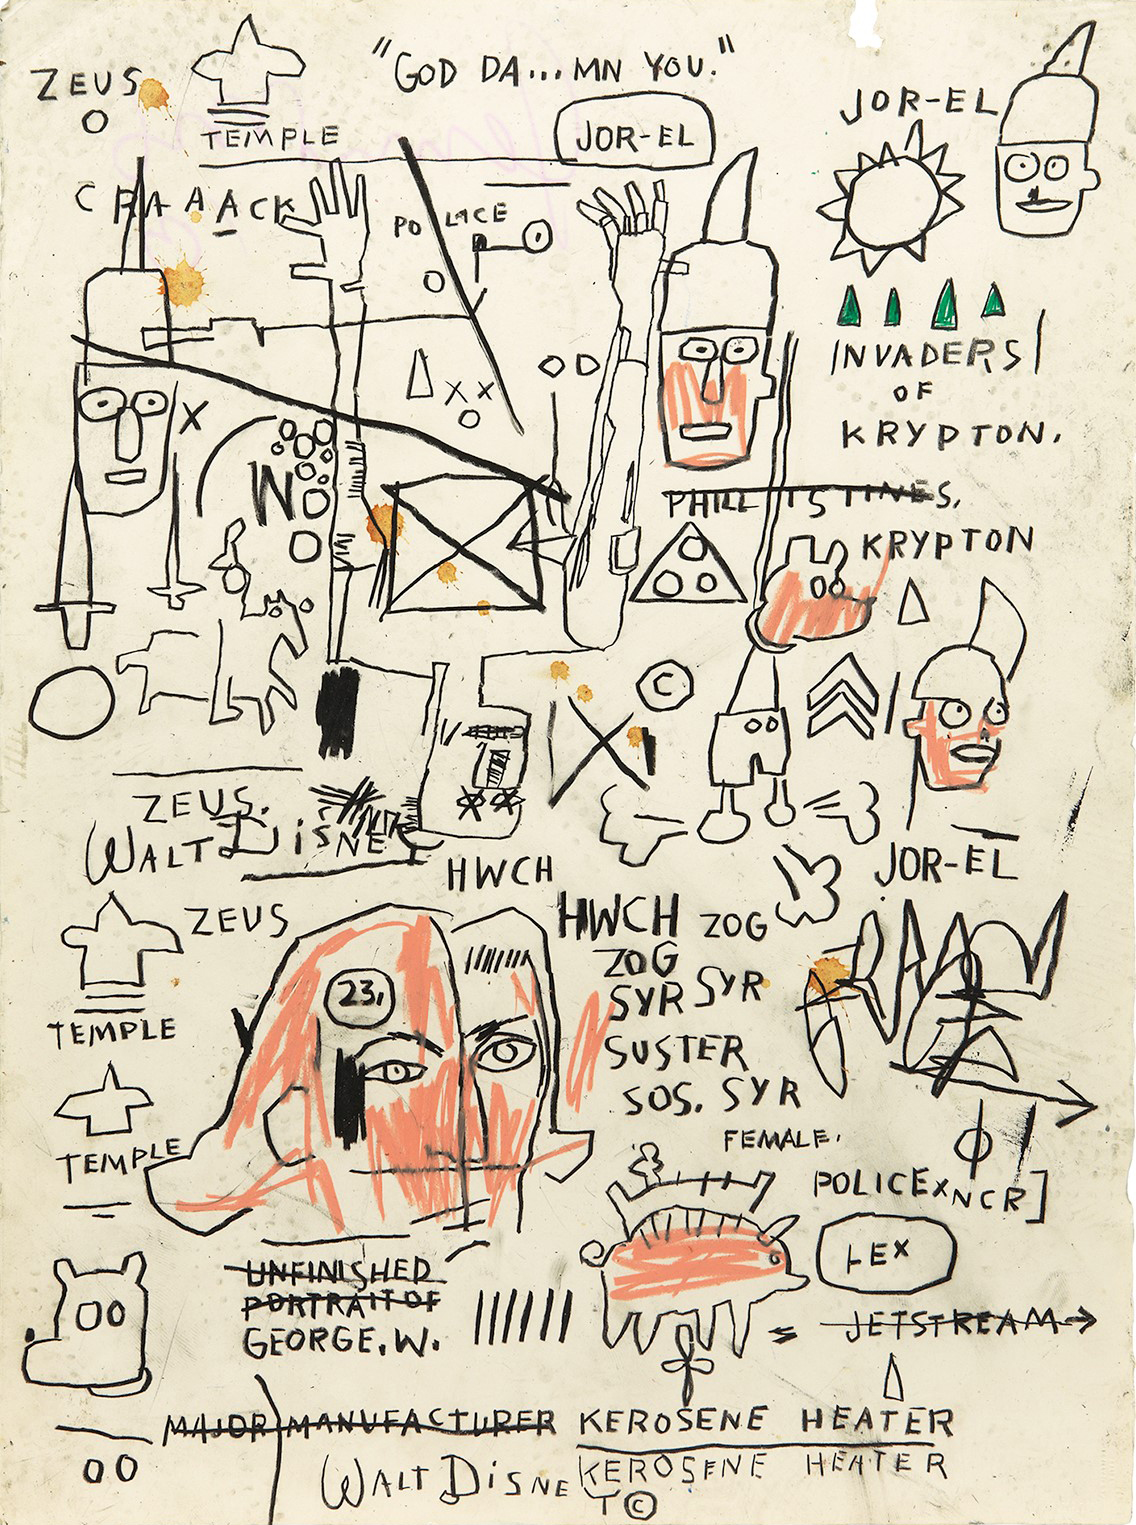 "GOD DA...MN YOU."
ZEUS
TEMPLE
JOR-EL
JOR-EL
CRAAACK
POLICE
INVADERS
OF
KRYPTON.
X
XX
PHILLISTINES.
KRYPTON
©
X
ZEUS.
WALT DISNE
HWCH
JOR-EL
ZEUS
HWCH ZOG
ZOG
SYR SYR
23.
TEMPLE
SUSTER
SOS. SYR
FEMALE.
TEMPLE
POLICE X NCR]
LEX
UNFINISHED
PORTRAIT OF
GEORGE.W.
JETSTREAM
MAJOR MANUFACTURER KEROSENE HEATER
WALT DISNE KEROSENE HEATER
T©